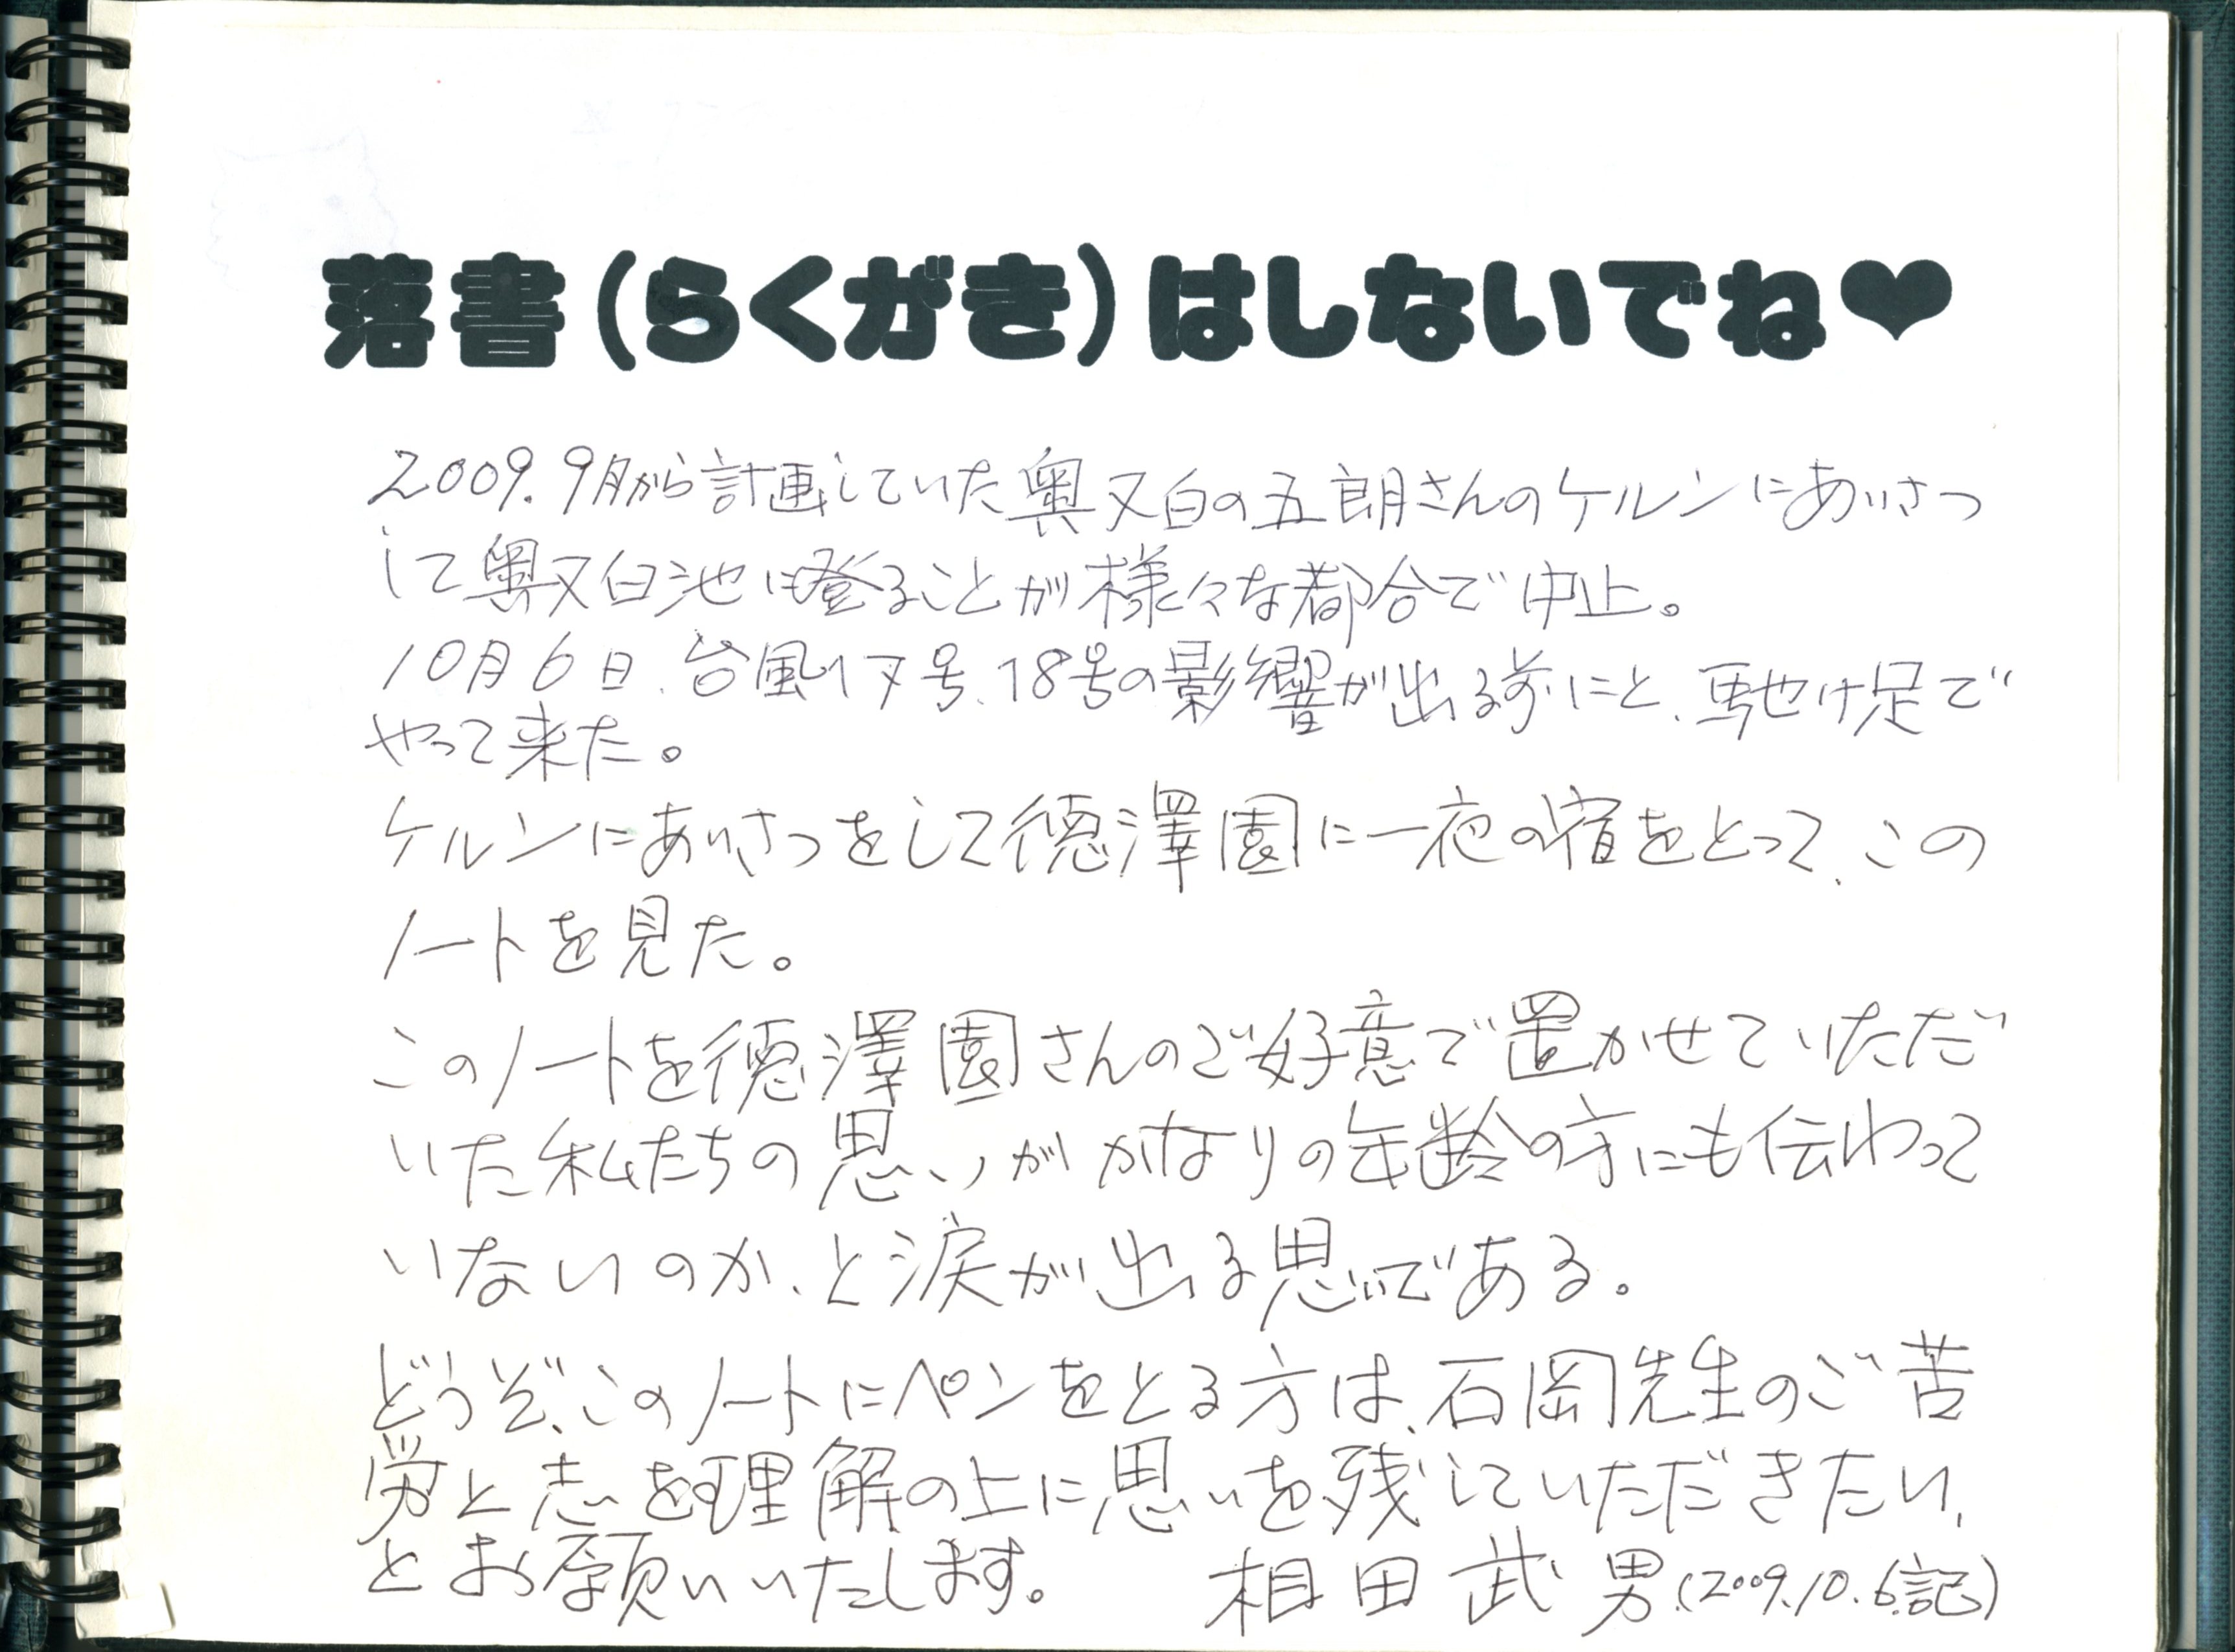 落書(らくがき)はしないでね♥
2009.9月から計画していた奥又白の五朗さんのケルンにあいさつ
して奥又白池に登ることが様々な都合で中止。
10月6日、台風17号、18号の影響が出る前にと、馳け足で
やって来た。
ケルンにあいさつをして徳澤園に一夜の宿をとって、この
ノートを見た。
このノートを徳澤園さんのご好意で置かせていただ
いた私たちの思いがかなりの年齢の方にも伝わって
いないのか、と涙が出る思いである。
どうぞ、このノートにペンをとる方は、石岡先生のご苦
労と志を理解の上に思いを残していただきたい、
とお願いいたします。 相田武男(2009.10.6.記)